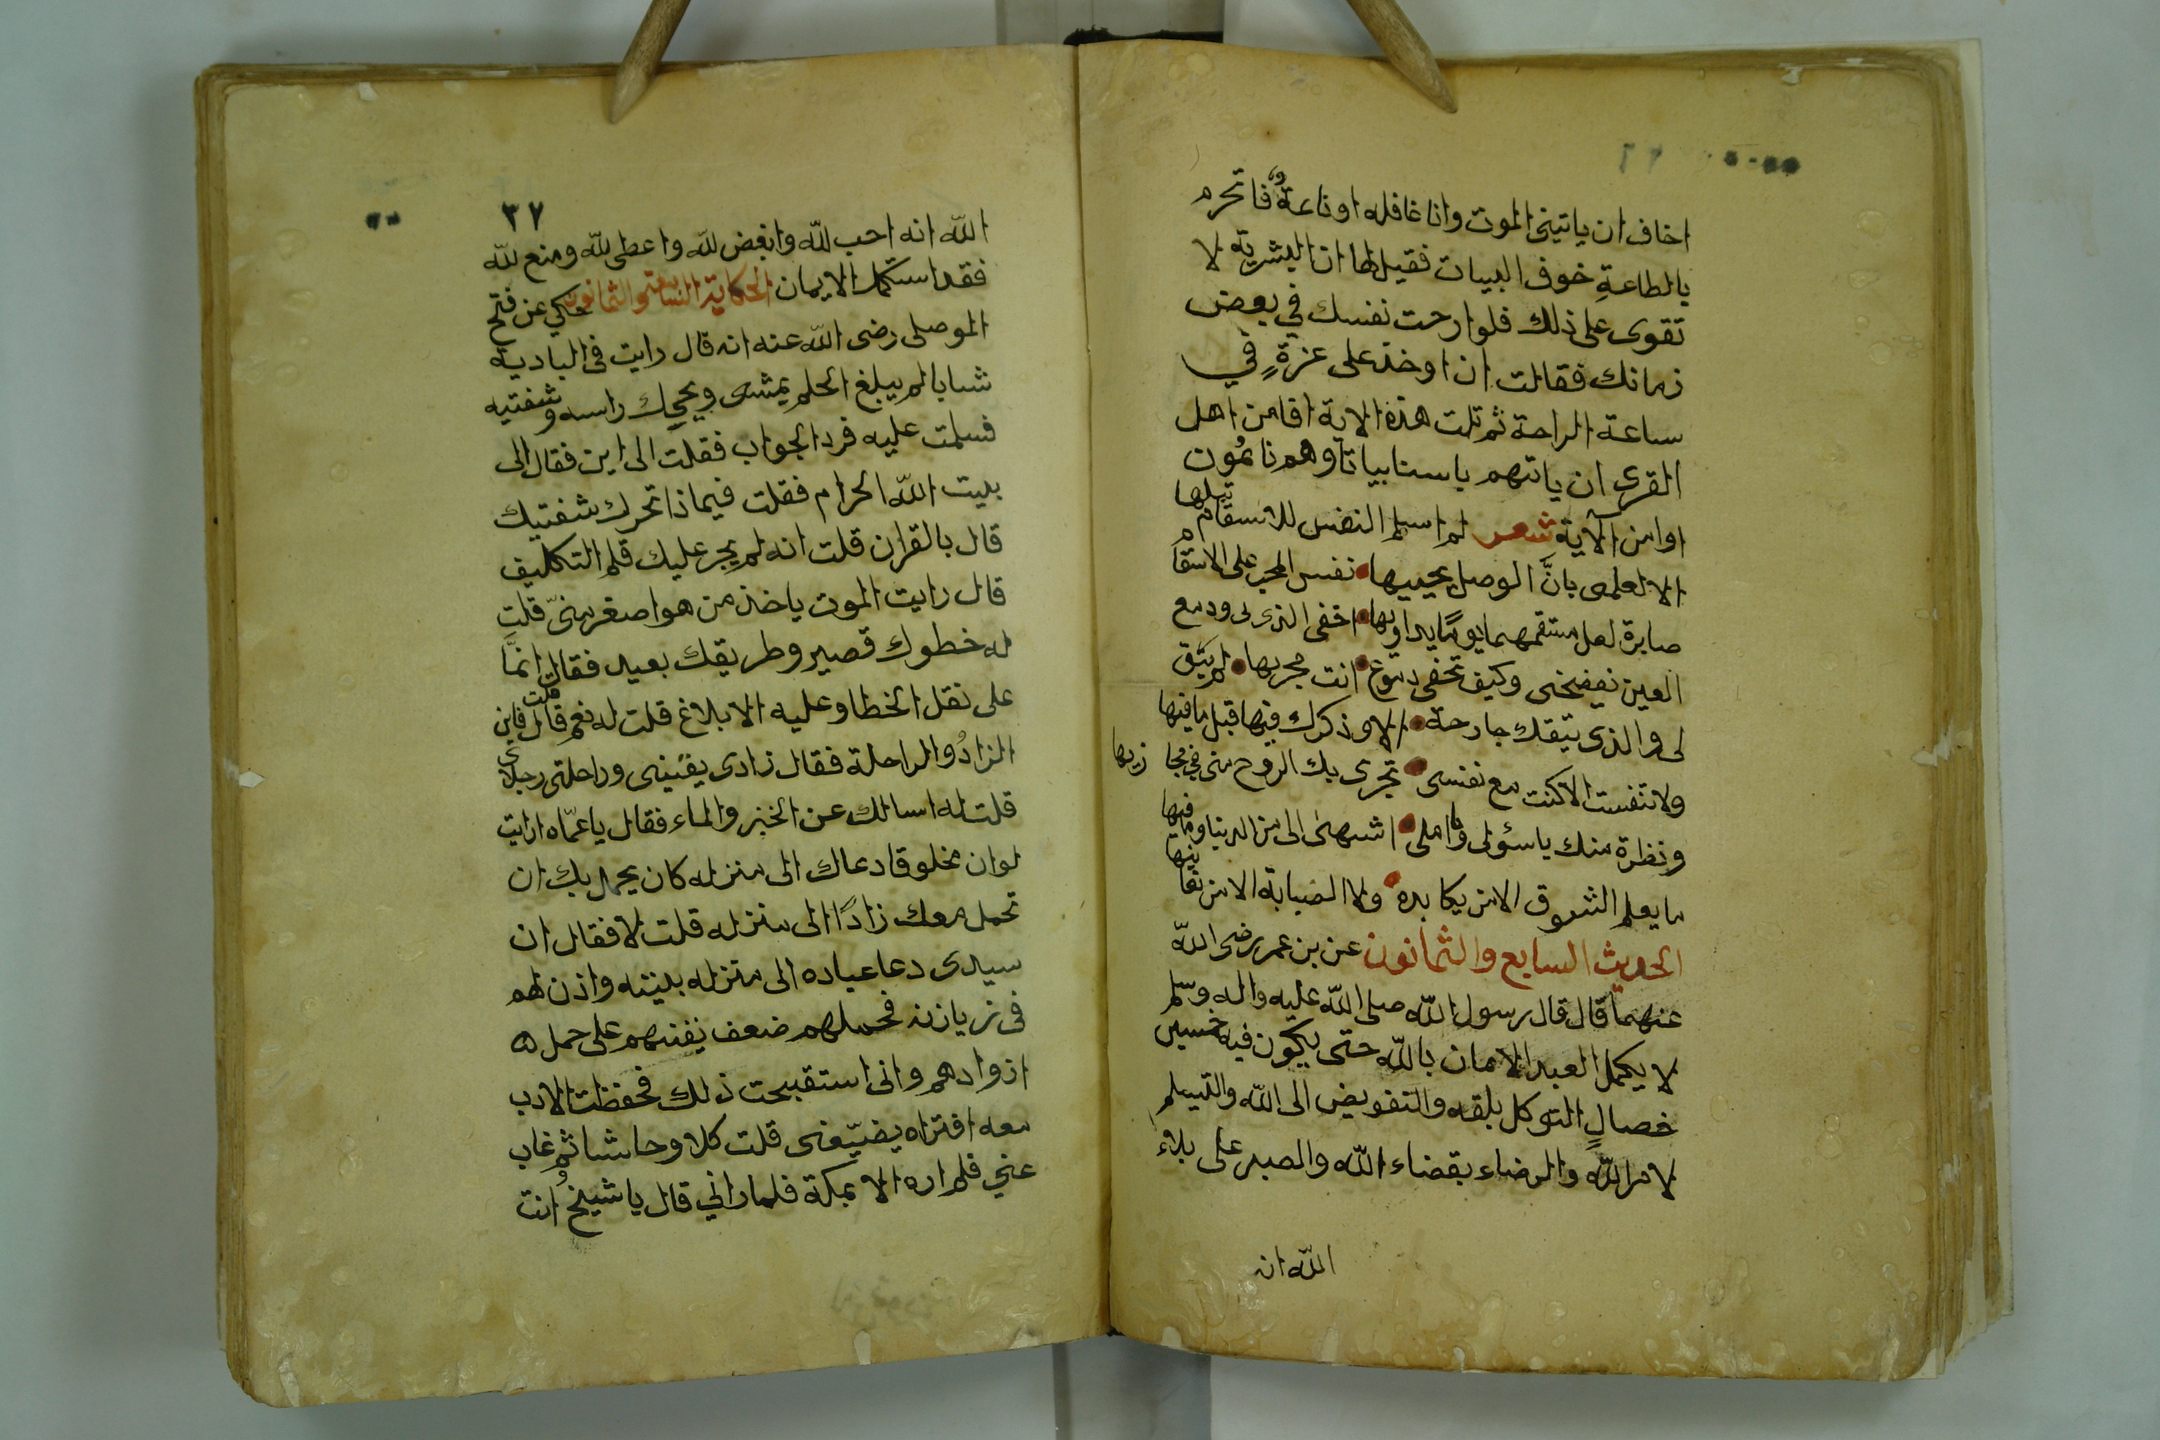 اخاف ان ياتيني الموت وانا غافله او ناعة فاتحرم
بالطاعةِ خوف البيات فقيل لها ان البشرية لا
تقوى على ذلك فلو ارحت نفسك في بعض
زمانك فقالت ان اوخذ على عزةٍ في
ساعة الراحة ثم تلت هذه الاية افامن اهل
القرى ان ياتهم باسنا بياتا وهم نائمون
اوامن الآية شعر لم اسلم النفس للاسقام تبلها
الا لعلمى بانَّ الوصل يحييها نفس المحب على الاسقام
صابرة لعل مسقمهما يومًا يداويها اخفى الذى لى ودمع
العين نفضحنى وكيف تخفى دموع انت مجريها لم يَبق
لى والذى يبقك جارحة الا وذكرك فيها قبل ما فيها
ولا تنفست الا كنت مع نفسى تجرى بك الروح منى في مجا ريها
ونظرة منك يا سؤلى ويا املى اشهى الى من الدنيا وما فيها
ما يعلم الشوق الا من يكابده ولا الصبابة الا من يعا نيها
الحديث السابع والثمانون عن بن عمر رضى الله
عنهما قال قال رسول الله صلى الله عليه واله وسلم
لا يكمل العبد الايمان بالله حتى يكون فيه خمس
خصالٍ التوكل بلقه والتفويض الى الله والتسلم
لامر الله والرضاء بقضاء الله والصبر على بلاء
الله انه
٣٧
الله انه احب لله وابغض لله واعطى لله ومنع لله
فقد استكمل الايمان الحكاية السابعة والثمانون حكي عن فتح
الموصلى رضى الله عنه انه قال رايت فى البادية
شابا لم يبلغ الحلم يمشى ويحرك راسه وشفتيه
فسلمت عليه فرد الجواب فقلت الى اين فقال الى
بيت الله الحرام فقلت فيما ذا تحرك شفتيك
قال بالقران قلت انه لم يجر عليك قلم التكليف
قال رايت الموت ياخذ من هو اصغر منىّ قلت
له خطوك قصير وطريقك بعيد فقال انمّا
على نقل الخطا وعليه الابلاغ قلت له نعم قال قلت فاين
الزادُ والراحلة فقال زادى يقينى وراحلتى رجلاى
قلت له اسالك عن الخبز والماء فقال يا عمّاه ارايت
لو ان مخلوقا دعاك الى منزله كان يجمل بك ان
تحمل معك زادًا الى منزله قلت لا فقال ان
سيدى دعا عباده الى منزله بيته واذن لهم
فى زيارنه فحملهم ضعف يقنهم على حمل
ازوادهم وانى استقبحت ذلك فحفظت الادب
معه افتراه يضيّعنى قلت كلا وحاشا ثم غاب
عني فلم اره الا بمكة فلما راني قال يا شيخُ انت